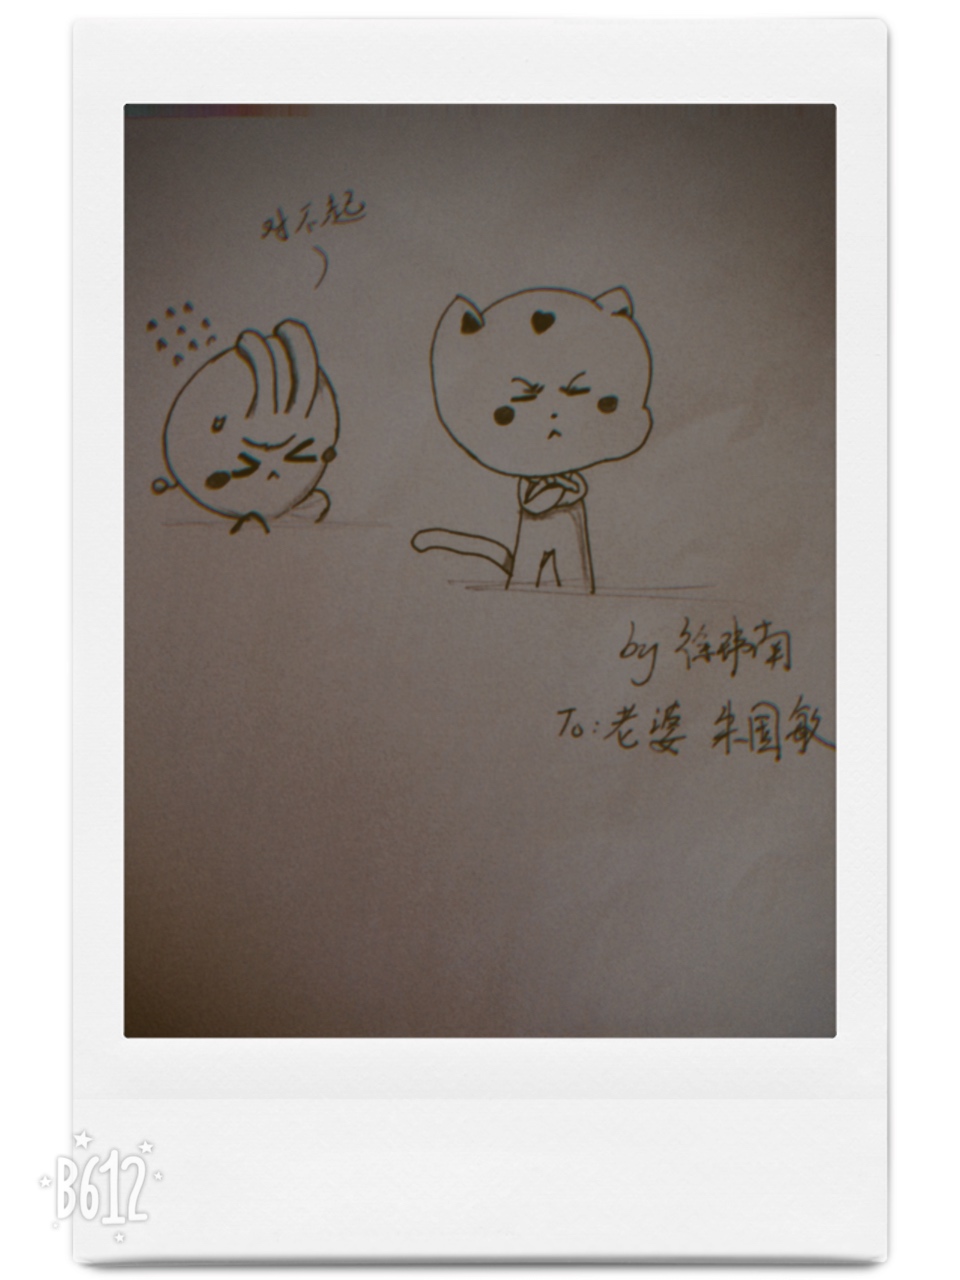 对不起
by 徐玮南
To: 老婆 朱国敏
B612